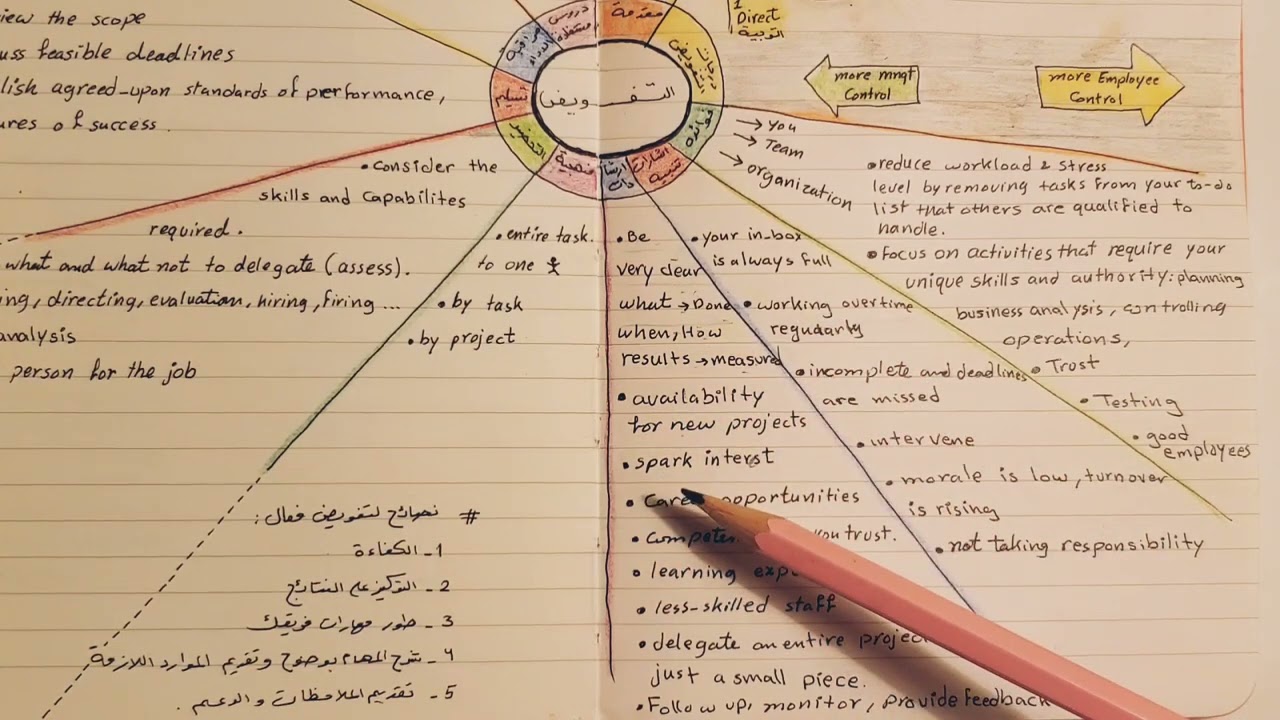 iew the scope
uss feasible deadlines
lish agreed-upon standards of performance,
ures of success.
دروس
مقدمة
درجات
التفويض
فوائده
اشارات
ارشادات
منهجية
التحضير
تسليم
مراقبة
التفويض
1
Direct
التوجيه
more mngt
Control
more Employee
Control
→ You
→ Team
→ organization
• reduce workload & stress
level by removing tasks from your to-do
list that others are qualified to
handle.
• Focus on activities that require your
unique skills and authority: planning
business analysis, controlling
operations,
• Trust
• Testing
• good
employees
• your in-box
is always full
• working overtime
regudarly
• incomplete and deadlines
are missed
• intervene
• morale is low, turnover
is rising
• not taking responsibility
• Be
very clear
what → Done
when, How
results → measured
• availability
for new projects
• spark interst
• Care opportunities
• Compete you trust.
• learning exp
• less-skilled staff
• delegate an entire projec
just a small piece.
• Follow up, monitor, provide feedback
• entire task.
to one
• by task
• by project
• consider the
skills and capabilites
required.
what and what not to delegate (assess).
ing, directing, evaluation, hiring, firing ...
analysis
person for the job
# نصائح لتفويض فعال:
1- الكفاءة
2- التركيز على النتائج
3- طور مهارات فريقك
4- شرح المهام بوضوح وتقديم الموارد اللازمة
5- تقديم الملاحظات والدعم.